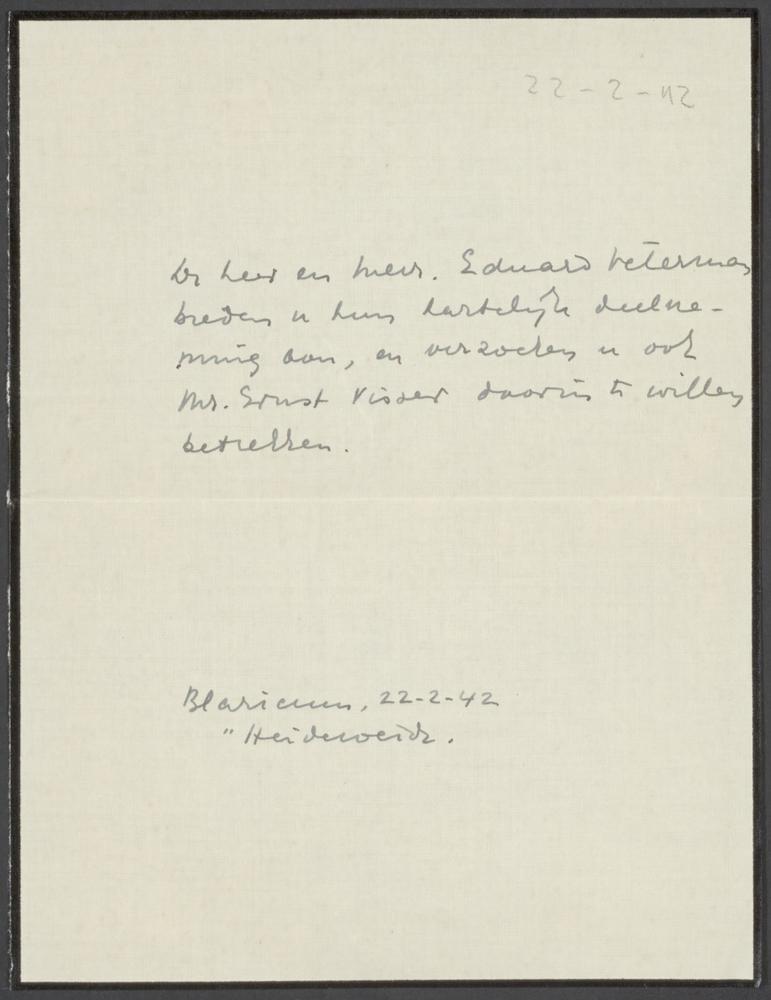 22-2-42
De heer en mevr. Eduard Veterman
bieden u hun hartelijk deelne-
ming aan, en verzoeken u ook
Mr. Ernst Visser daarin te willen
betrekken.
Blaricum, 22-2-42
"Heideweide.